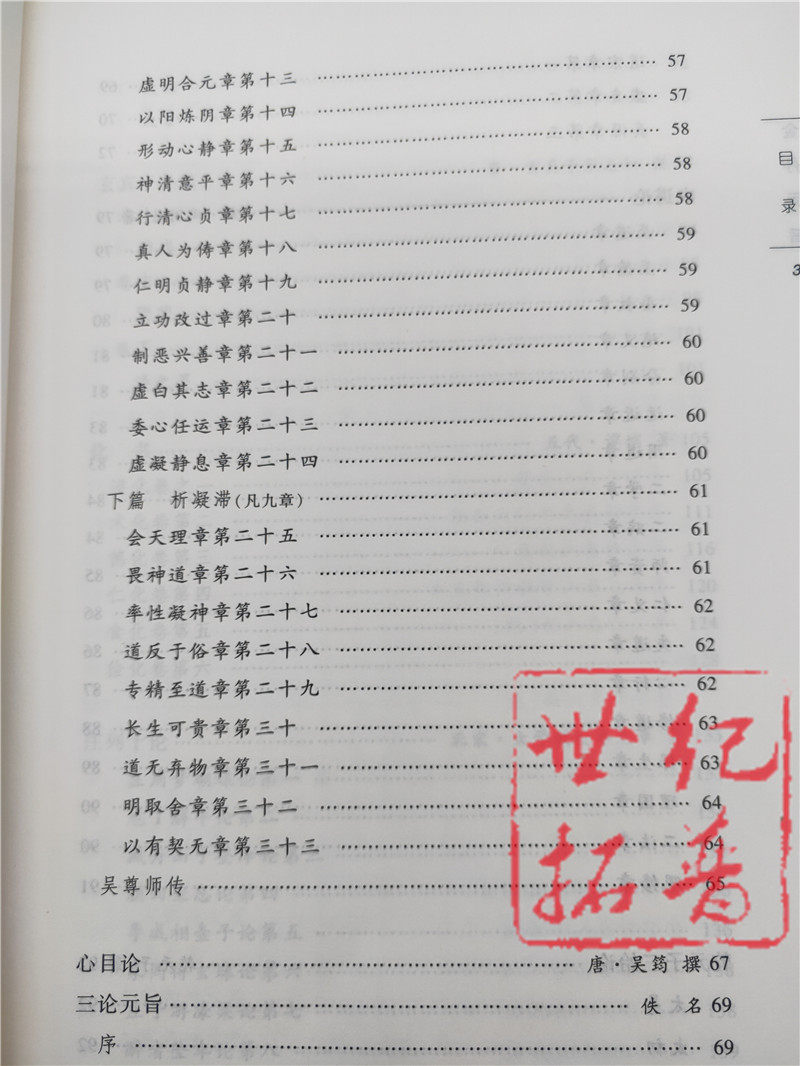 虚明合元章第十三 …… 57
以阳炼阴章第十四 …… 57
形动心静章第十五 …… 58
神清意平章第十六 …… 58
行清心贞章第十七 …… 58
真人为俦章第十八 …… 59
仁明贞静章第十九 …… 59
立功改过章第二十 …… 59
制恶兴善章第二十一 …… 60
虚白其志章第二十二 …… 60
委心任运章第二十三 …… 60
虚凝静息章第二十四 …… 60
下篇 析凝滞(凡九章) …… 61
会天理章第二十五 …… 61
畏神道章第二十六 …… 61
率性凝神章第二十七 …… 62
道反于俗章第二十八 …… 62
专精至道章第二十九 …… 62
长生可贵章第三十 …… 63
道无弃物章第三十一 …… 63
明取舍章第三十二 …… 64
以有契无章第三十三 …… 64
吴尊师传 …… 65
心目论 …… 唐·吴筠 撰 67
三论元旨 …… 佚 名 69
序 …… 69
目
录
3
世纪
拓普